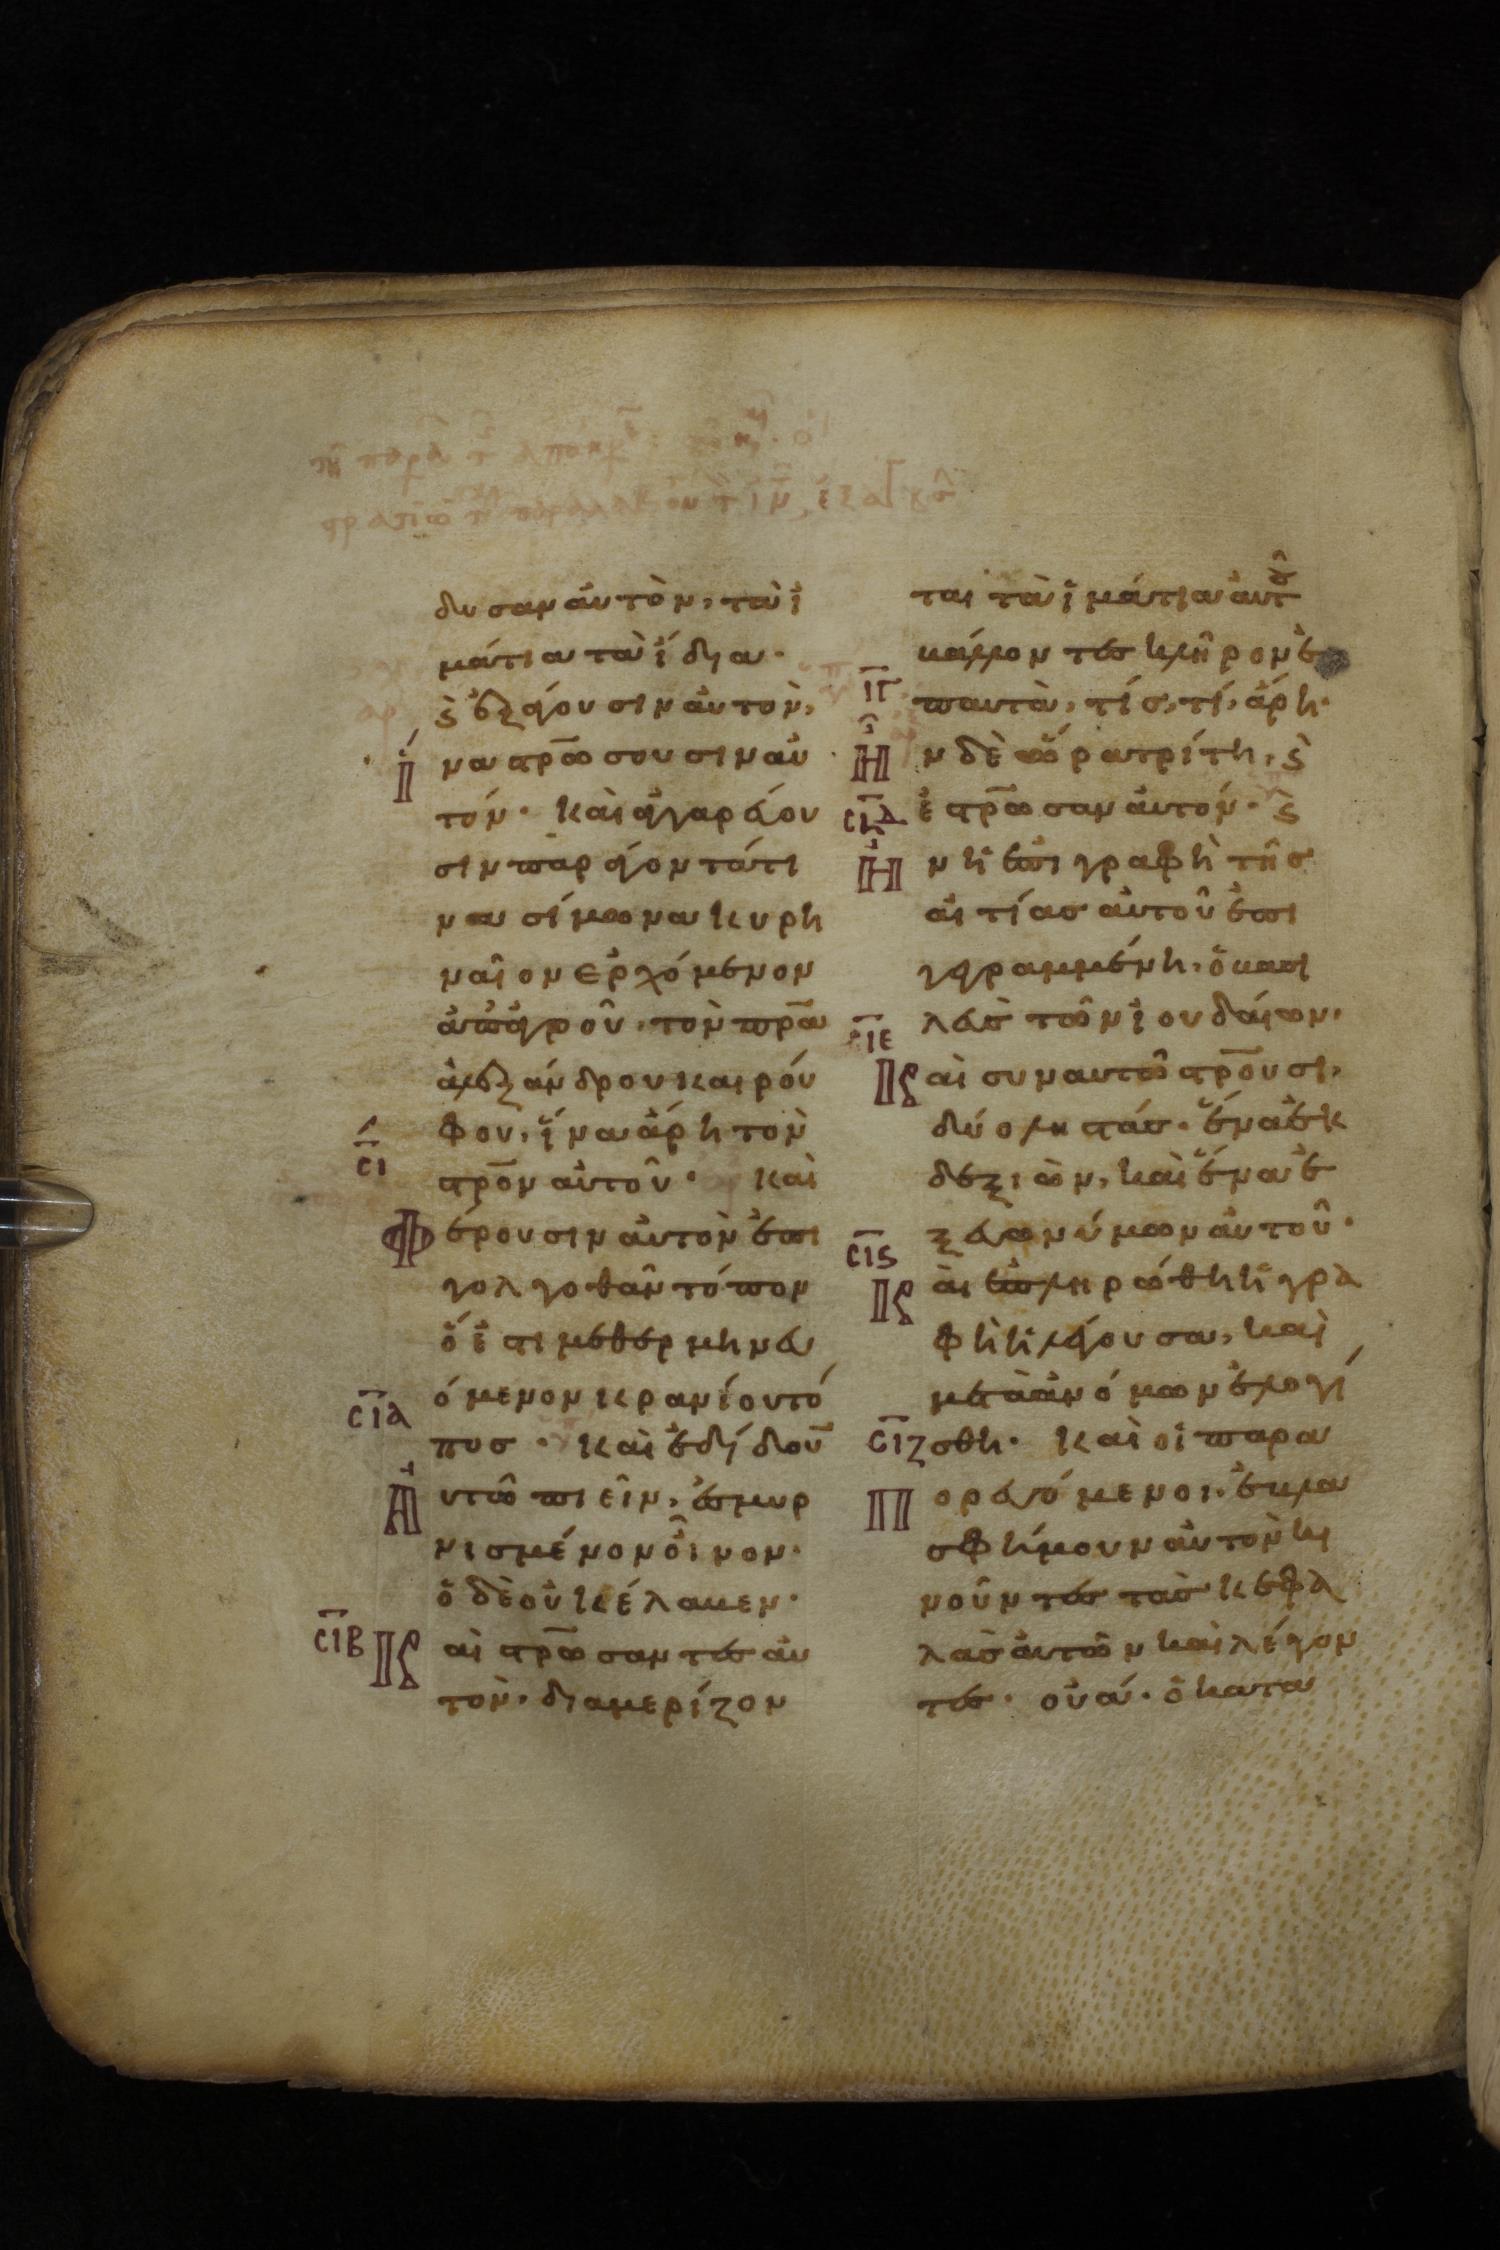 δυσαν αὐτὸν, τὰ ἱ
μάτια τὰ ἴδια·
ϛ ἐξάγουσιν αὐτὸν,
ἵνα στρ̅ω̅σουσιν αὐ
τόν· καὶ ἀγγαρεύου
σιν παράγοντά τι
να σίμωνα κυρη
ναῖον ἐρχόμενον
ἀπ' ἀγροῦ, τὸν πρ̅α̅
ἀλεξάνδρου και ρού
φου, ἵνα ἄρη τὸν
σ̅ι
στρ̅ο̅ν αὐτοῦ· καὶ
Φέρουσιν αὐτὸν ἐπὶ
γολγοθᾶν τόπον
ὅ ἐστι μεθερμηνευ
όμενον κρανίου τό
σ̅ι̅α
πος· καὶ ἐδίδου̅
Αυτῶ πιεῖν, ἐσμυρ
νισμένον οἶνον·
ὁ δὲ οὐκ έλαβεν·
σ̅ι̅β
Καὶ στρ̅ω̅σαντες αυ
τὸν, διαμερίζον
ται τὰ ἱμάτια αὐτοῦ
βάλλοντες κλῆρον ἐ
σ̅ι̅γ
π' αυτὰ, τίς, τί, ἄρη·
Ἦν δὲ ὥρα τρίτη, ϛ
σ̅ι̅δ
ἐστρ̅ω̅σαν αὐτόν· ϛ
Ἦν ἡ ἐπιγραφὴ τῆς
αἰτίας αὐτοῦ ἐπι
γεγραμμένη, ὁ βασι
λεὺς τῶν ἰουδαίων,
σ̅ι̅ε
Καὶ συν αυτῶ στρ̅ο̅υσι,
δύο ληστάς· ἕνα ἐκ
δεξιῶν, καὶ ἕνα ἐ
ξ ευωνύμων αὐτοῦ·
σ̅ι̅ϛ
Καὶ ἐπληρώθη ἡ γρα
φὴ ἡ λέγουσα, καὶ
μετὰ ἀνόμων ἐλογί
σ̅ι̅ζ
σθη· καὶ οἱ παρα
Πορευόμενοι, ἐβλα
σφήμουν αὐτὸν κι
νοῦντες τὰς κεφα
λὰς αυτῶν καὶ λέγον
τες· οὐά· ὁ κατα